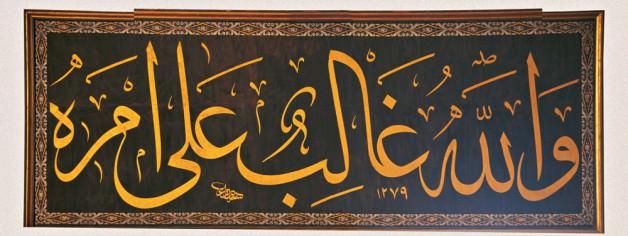 وَاللّٰهُ غَالِبٌ عَلٰى اَمْرِهِ
١٢٧٩